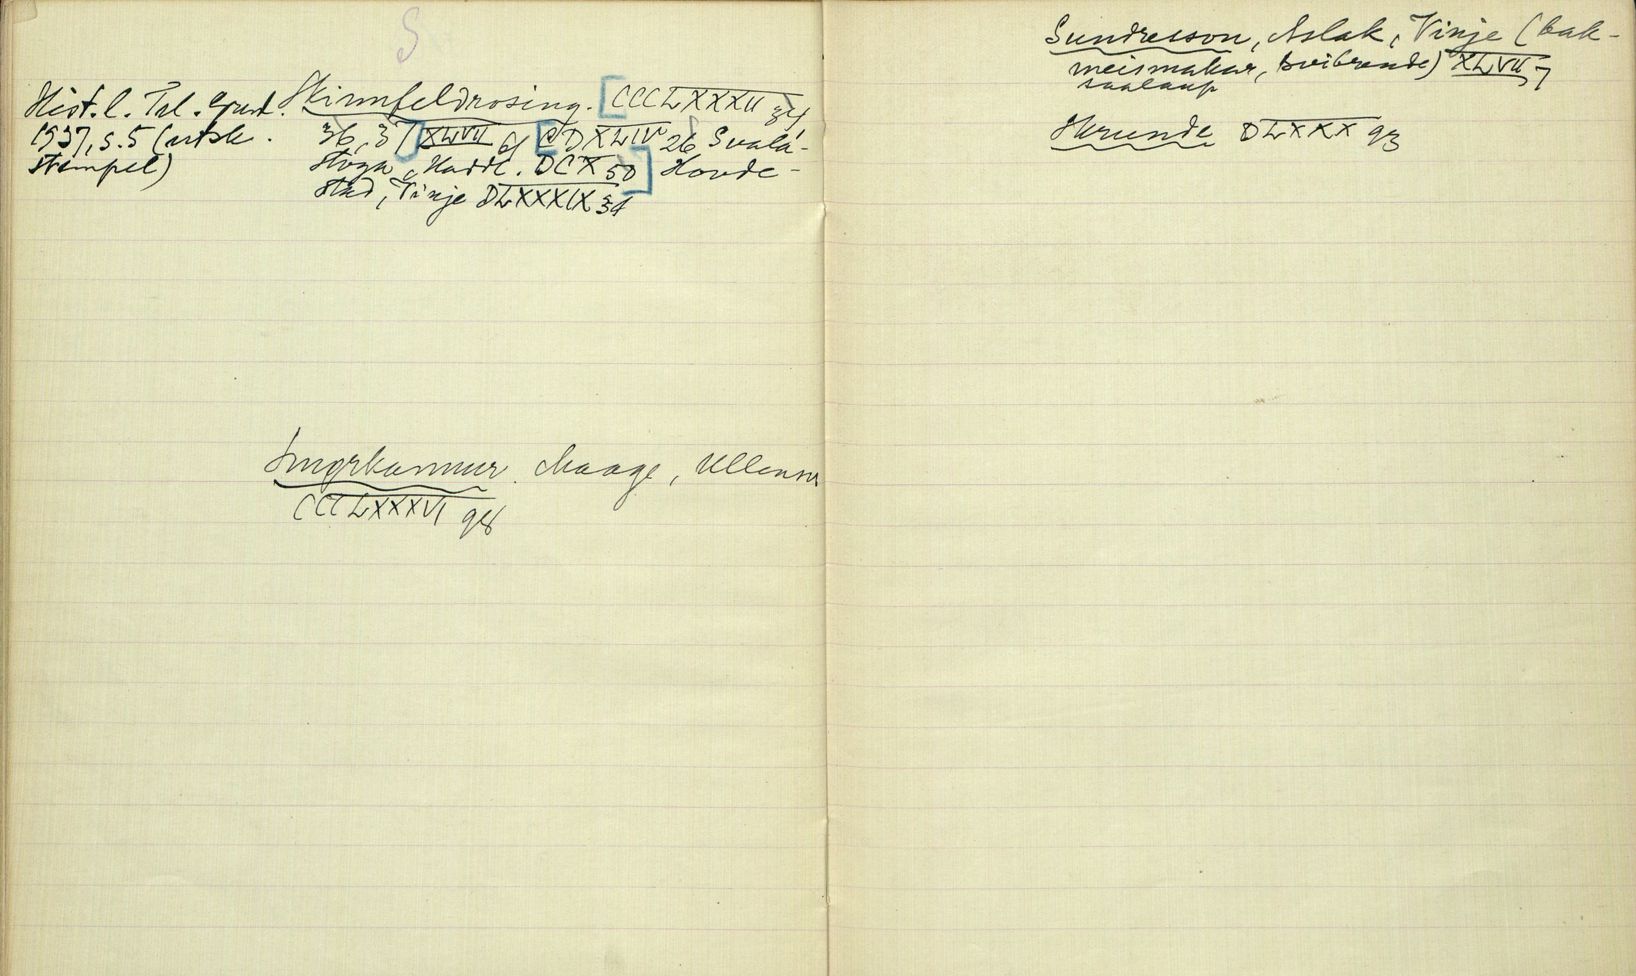 S
Hist. l. Tel. Grend.
1937, s. 5 (utsk.
stempel)
Skinnfeldrosing. [CCCLXXXII 34
36, 37] XLVII 61 [CDXLIV 26 Svalá-
stoga, Hadd. DCX 50] Hovde-
stad, Vinje DLXXXIX 34
Smørkannur. Haage, Ullensv
CCCLXXXVI 98
Sundresson, Aslak, Vinje (bak-
meismakar, tvibrende) XLVII 57
Skrunde DLXXX 93